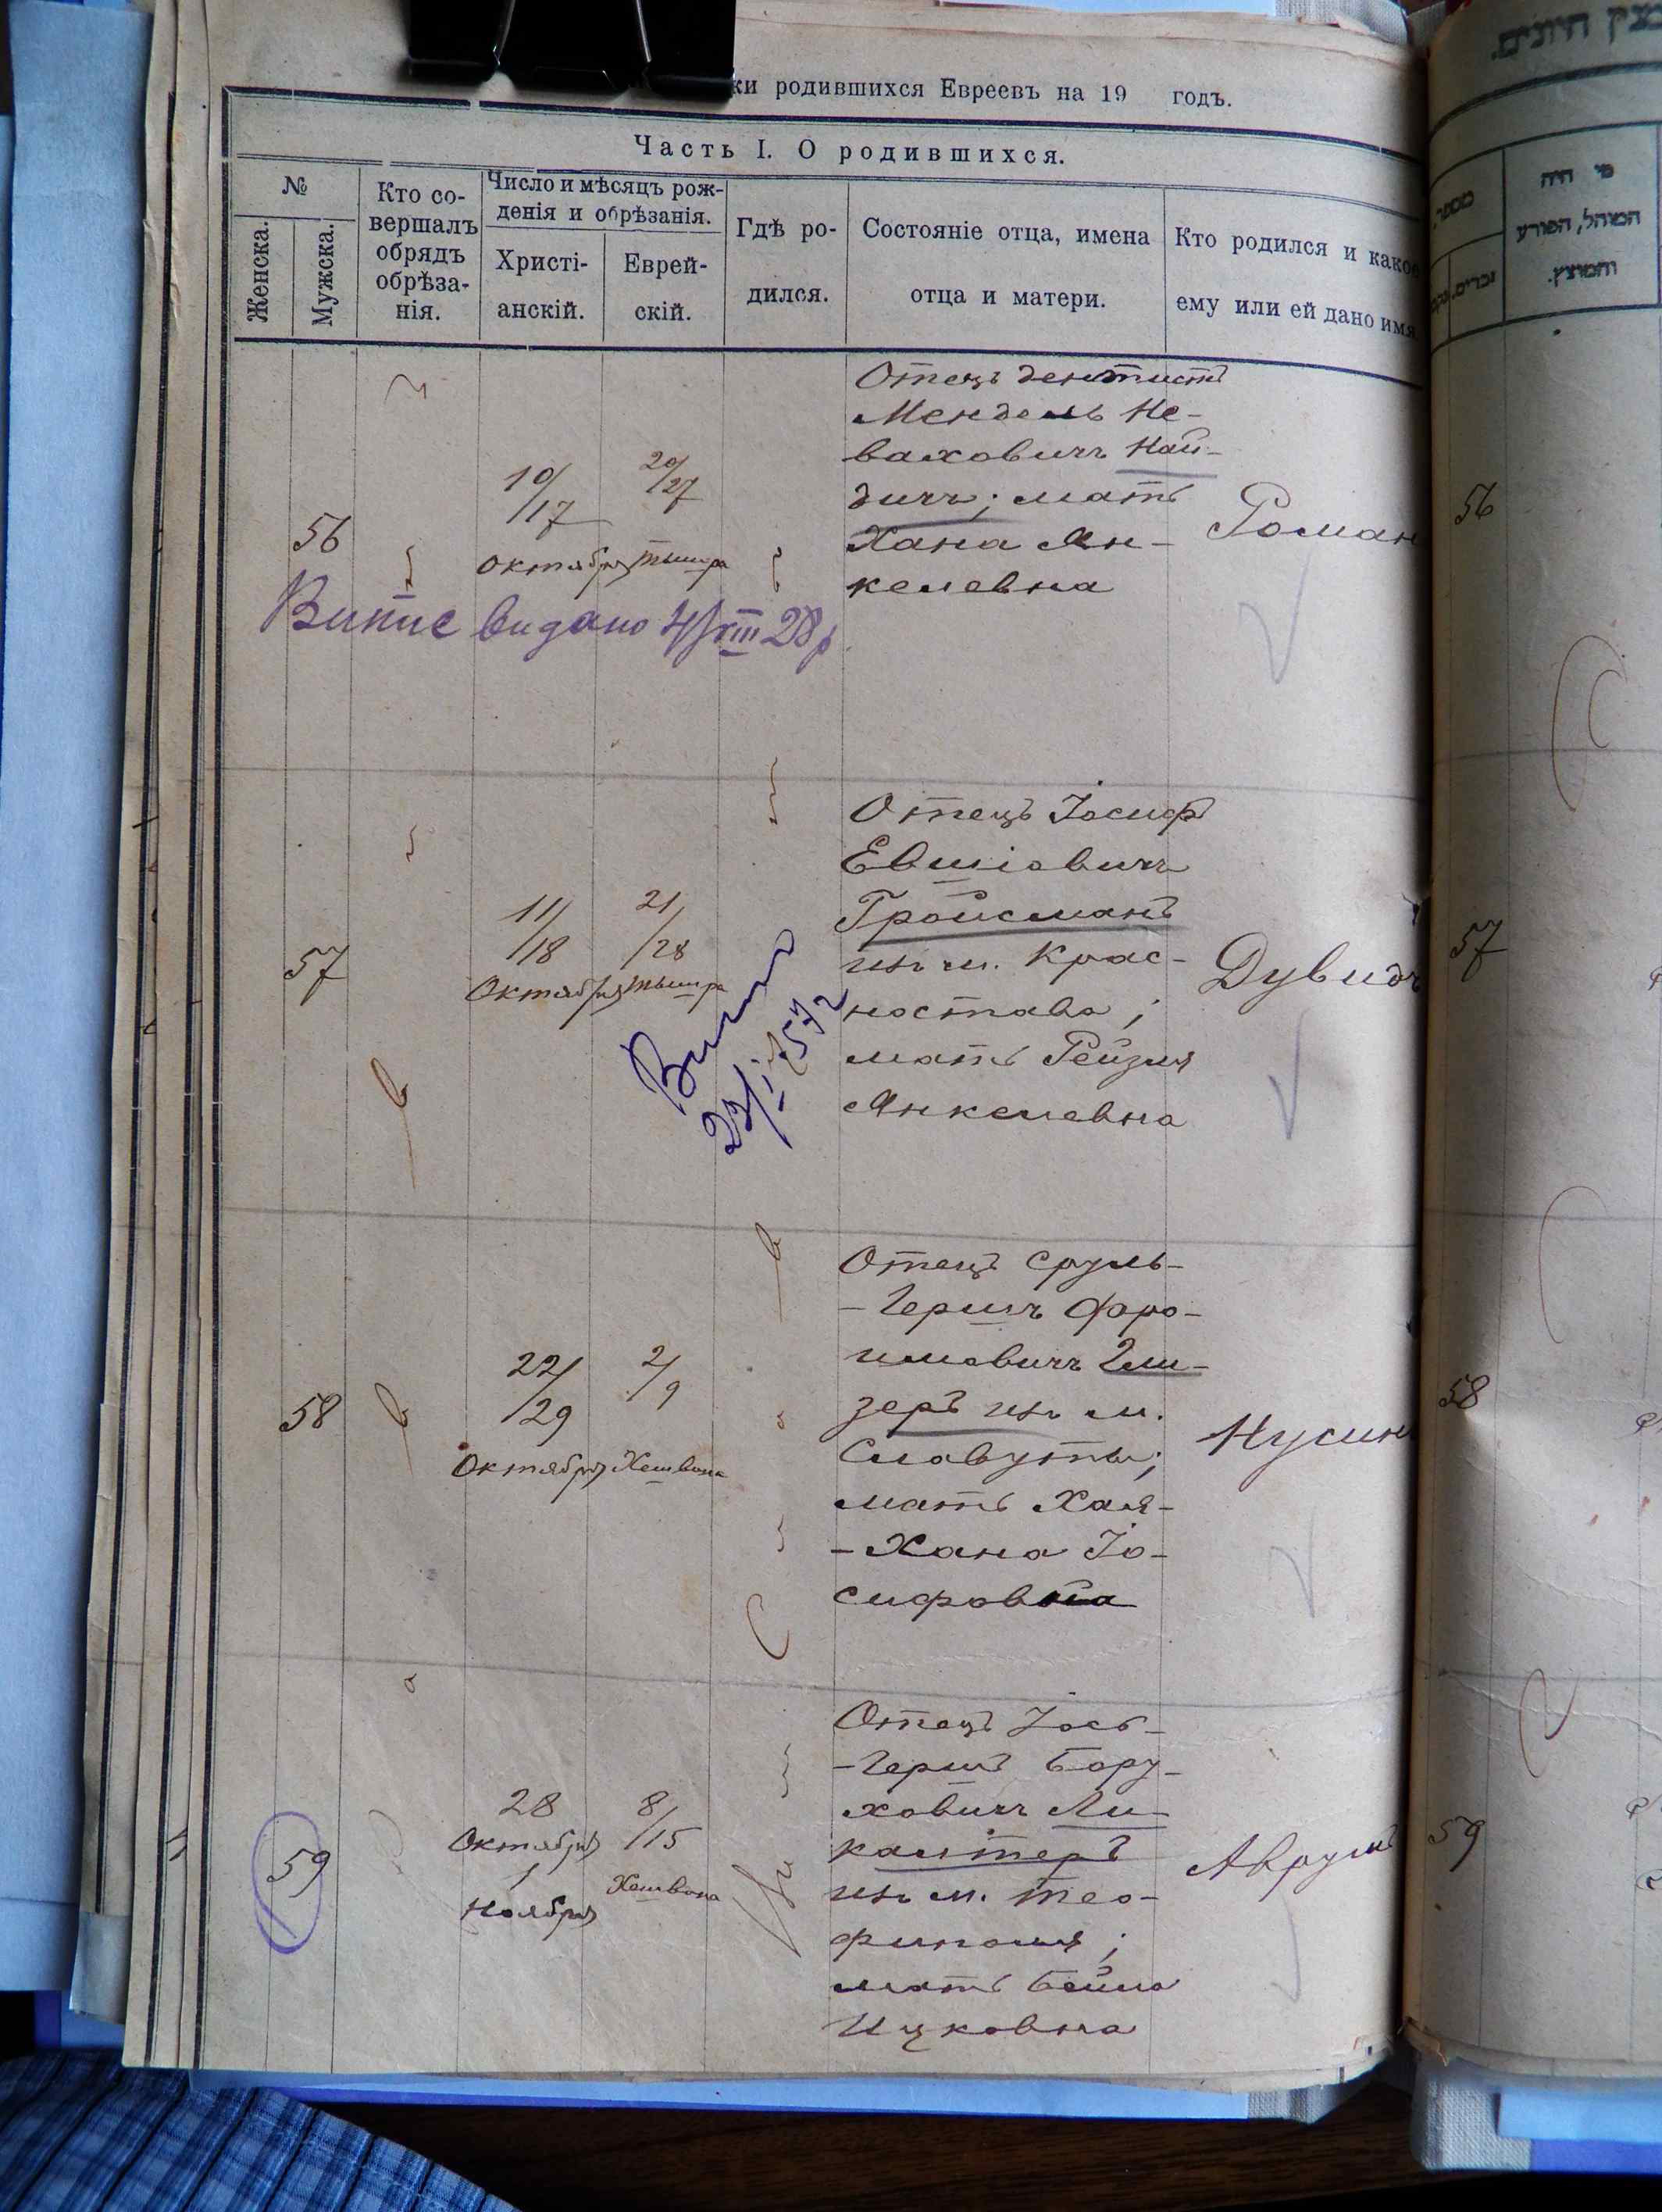 ки родившихся Евреевъ на 19 годъ.
Часть I. О родившихся.
№
Женска.
Мужска.
Кто со-
вершалъ
обрядъ
обрѣза-
нія.
Число и мѣсяцъ рож-
денія и обрѣзанія.
Христі-
анскій.
Еврей-
скій.
Гдѣ ро-
дился.
Состояніе отца, имена
отца и матери.
Кто родился и какое
ему или ей дано имя
56
10/17
Октября
20/27
тышра
Отецъ дентистъ
Мендель Не-
ваховичъ Най-
дичъ; мать
Хана Ян-
келевна
Роман
Випис видано 4/VIII 28 р
57
11/18
Октября
21/28
тышра
Отецъ Іосифъ
Евшіовичъ
Гройсманъ
изъ м. Крас-
ностава;
мать Рейзля
Янкелевна
Дувидъ
58
22/29
Октября
2/9
Хешвана
Отецъ Сруль-
-Гершъ Фро-
имовичъ Гли-
зеръ изъ м.
Славуты;
мать Хая-
-Хана Іо-
сифовна
Нусин
59
28
Октября
1
Ноября
8/15
Хешвана
Отецъ Іось-
-Гершъ Бору-
ховичъ Ли-
кштеръ
изъ м. Тео-
фиполя;
мать Бейла
Ицковна
Аврумъ
מספר
זכרים
מי היה
המוהל, הפורע
והמוצץ.
56
57
58
59